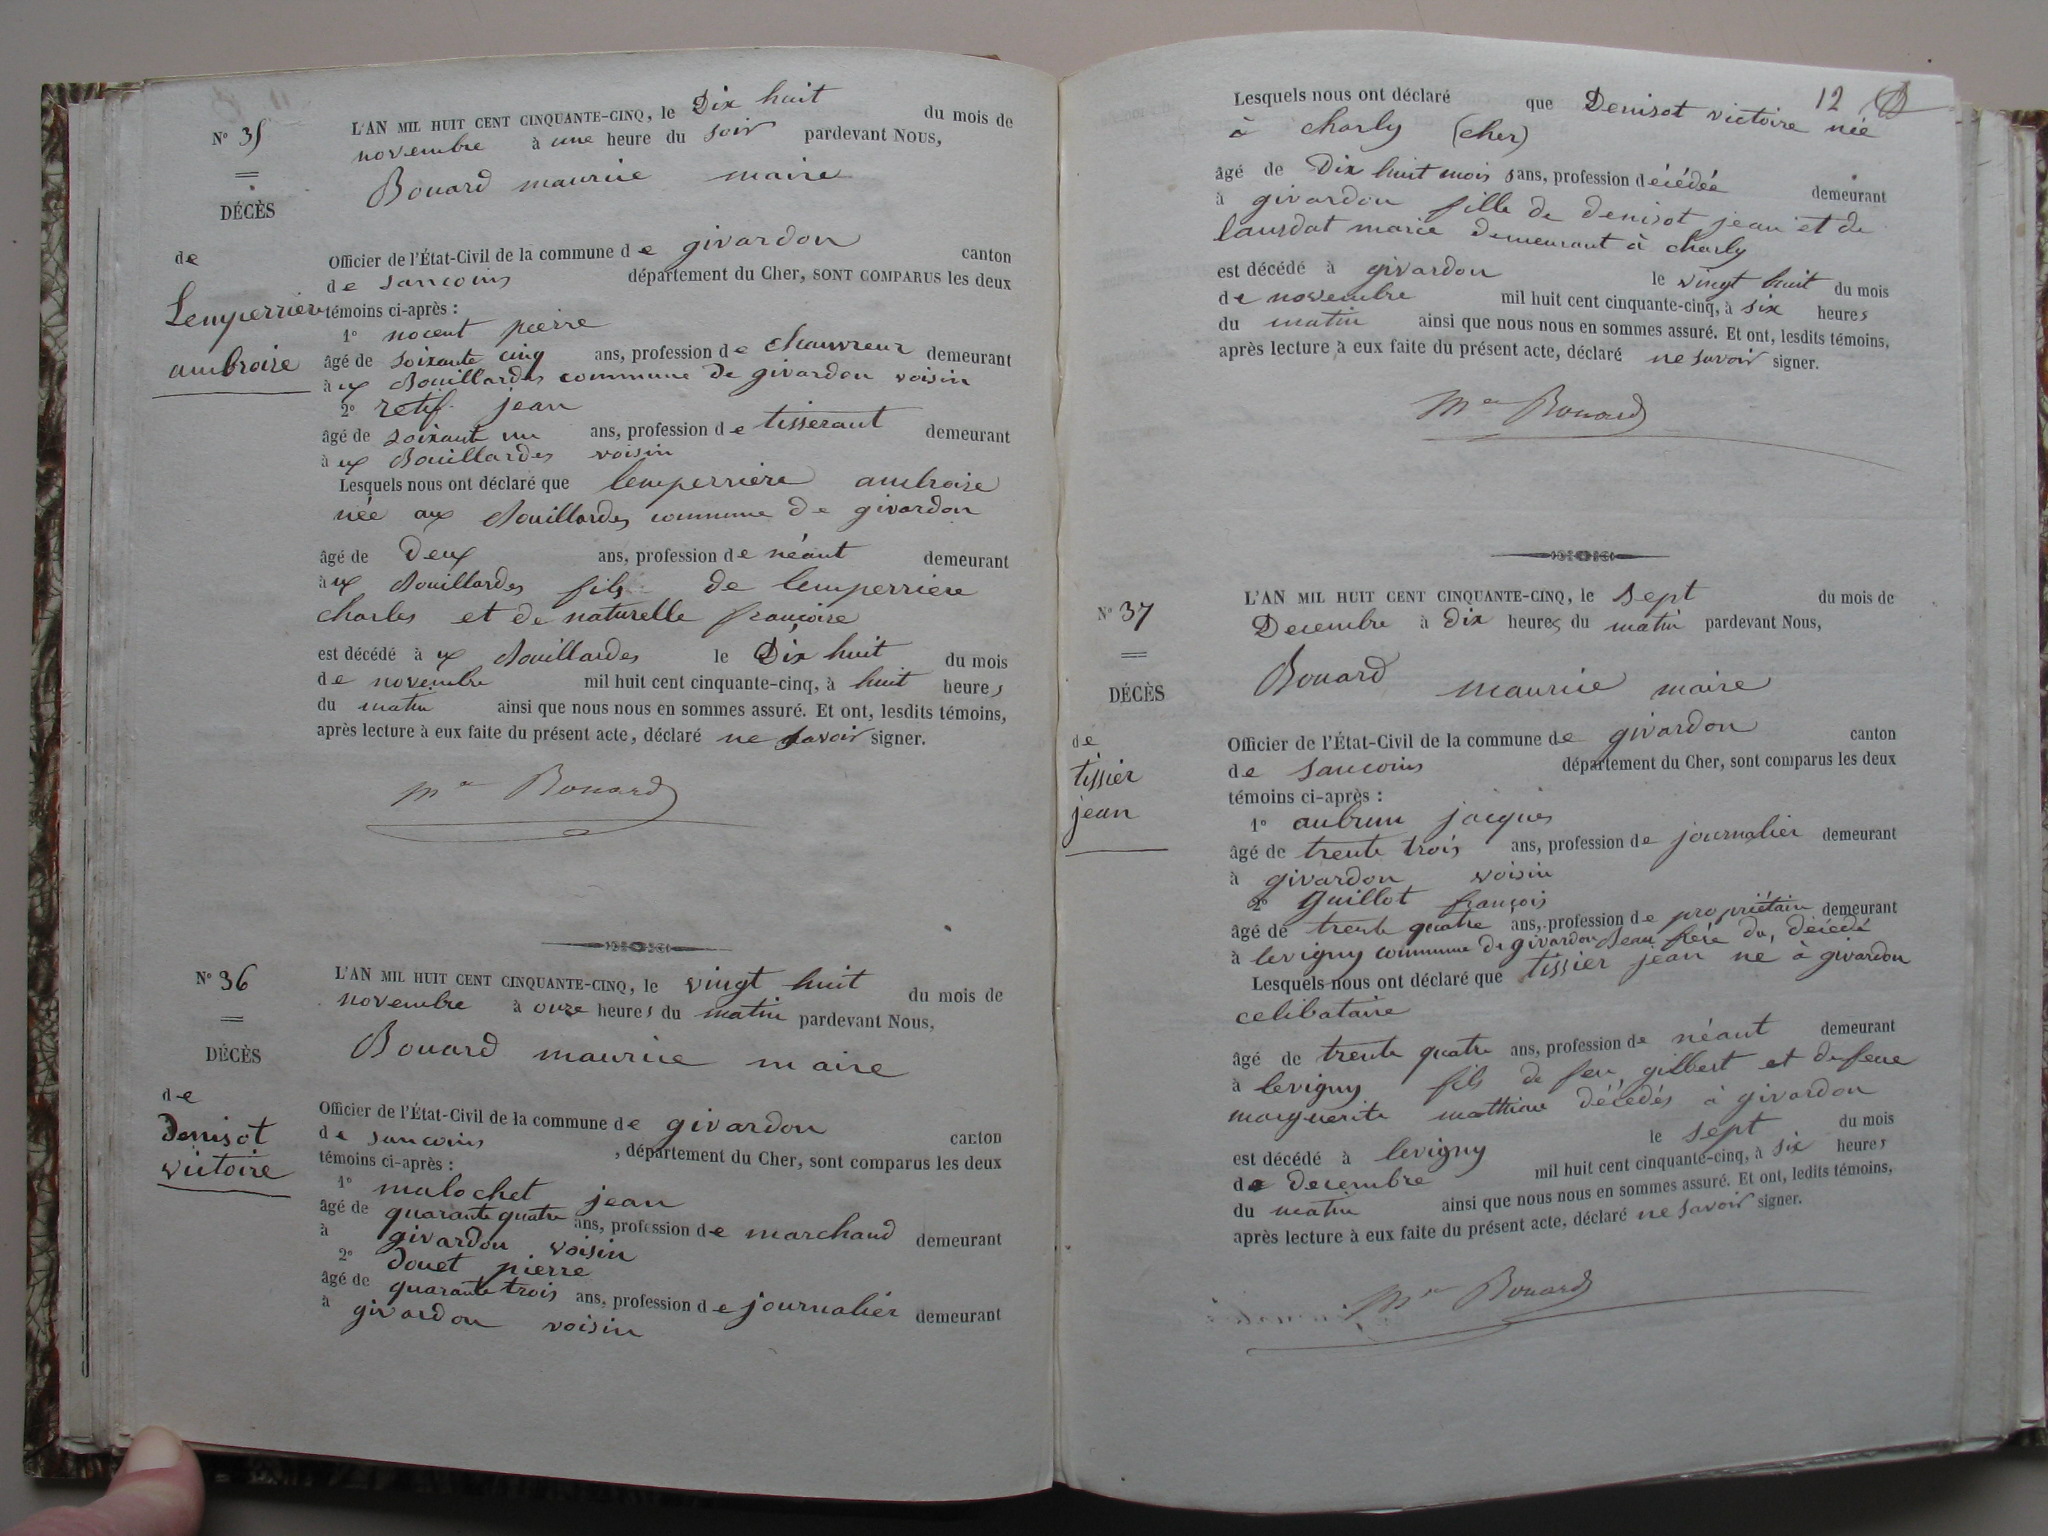 N° 35
DÉCÈS
de
Lemperrière
ambroise
L'AN MIL HUIT CENT CINQUANTE-CINQ, le Dix huit du mois de
novembre à une heure du soir pardevant NOUS,
Bouard maurice maire
Officier de l'État-Civil de la commune de givardon canton
de sancoins département du Cher, SONT COMPARUS les deux
témoins ci-après :
1° nocent pierre
âgé de soixante cinq ans, profession de chauvreur demeurant
à ux Bouillardes commune de givardon voisin
2° retif jean
âgé de soixant un ans, profession de tisserant demeurant
à ux Bouillardes voisin
Lesquels nous ont déclaré que lemperriere ambroise
née aux Bouillardes commune de givardon
âgé de Deux ans, profession de néant demeurant
à ux Bouillardes fils de lemperriere
charles et de naturelle françoise
est décédé à ux Bouillardes le Dix huit du mois
de novembre mil huit cent cinquante-cinq, à huit heures
du matin ainsi que nous nous en sommes assuré. Et ont, lesdits témoins,
après lecture à eux faite du présent acte, déclaré ne savoir signer.
Mce Bouard
N° 36
DÉCÈS
de
Denisot
victoire
L'AN MIL HUIT CENT CINQUANTE-CINQ, le vingt huit du mois de
novembre à onze heures du matin pardevant Nous,
Bouard maurice maire
Officier de l'État-Civil de la commune de givardon canton
de sancoins , département du Cher, sont comparus les deux
témoins ci-après :
1° malochet jean
âgé de quarante quatre ans, profession de marchand demeurant
à givardon voisin
2° Douet pierre
âgé de quarante trois ans, profession de journalier demeurant
à givardon voisin
12
Lesquels nous ont déclaré que Denisot victoire née
à charly (cher)
âgé de Dix huit mois sans, profession décédée demeurant
à givardon fille de denisot jean et de
laurdat marie demeurant à charly
est décédé à givardon le vingt huit du mois
de novembre mil huit cent cinquante-cinq, à six heures
du matin ainsi que nous nous en sommes assuré. Et ont, lesdits témoins,
après lecture à eux faite du présent acte, déclaré ne savoir signer.
Mce Bouard
N° 37
DÉCÈS
de
tissier
jean
L'AN MIL HUIT CENT CINQUANTE-CINQ, le sept du mois de
Decembre à Dix heures du matin pardevant Nous,
Bouard maurice maire
Officier de l'État-Civil de la commune de givardon canton
de sancoins département du Cher, sont comparus les deux
témoins ci-après :
1° aubrun jacques
âgé de trente trois ans, profession de journalier demeurant
à givardon voisin
2° guillot françois
âgé de trente quatre ans, profession de propriétaire demeurant
à levigny commune de givardon Beau frère du décédé
Lesquels nous ont déclaré que tissier jean né à givardon
celibataire
âgé de trente quatre ans, profession de néant demeurant
à levigny fils de feu gilbert et de feue
marguerite matthieu décédés à givardon
est décédé à levigny le sept du mois
de decembre mil huit cent cinquante-cinq, à six heures
du matin ainsi que nous nous en sommes assuré. Et ont, ledits témoins,
après lecture à eux faite du présent acte, déclaré ne savoir signer.
Mce Bouard